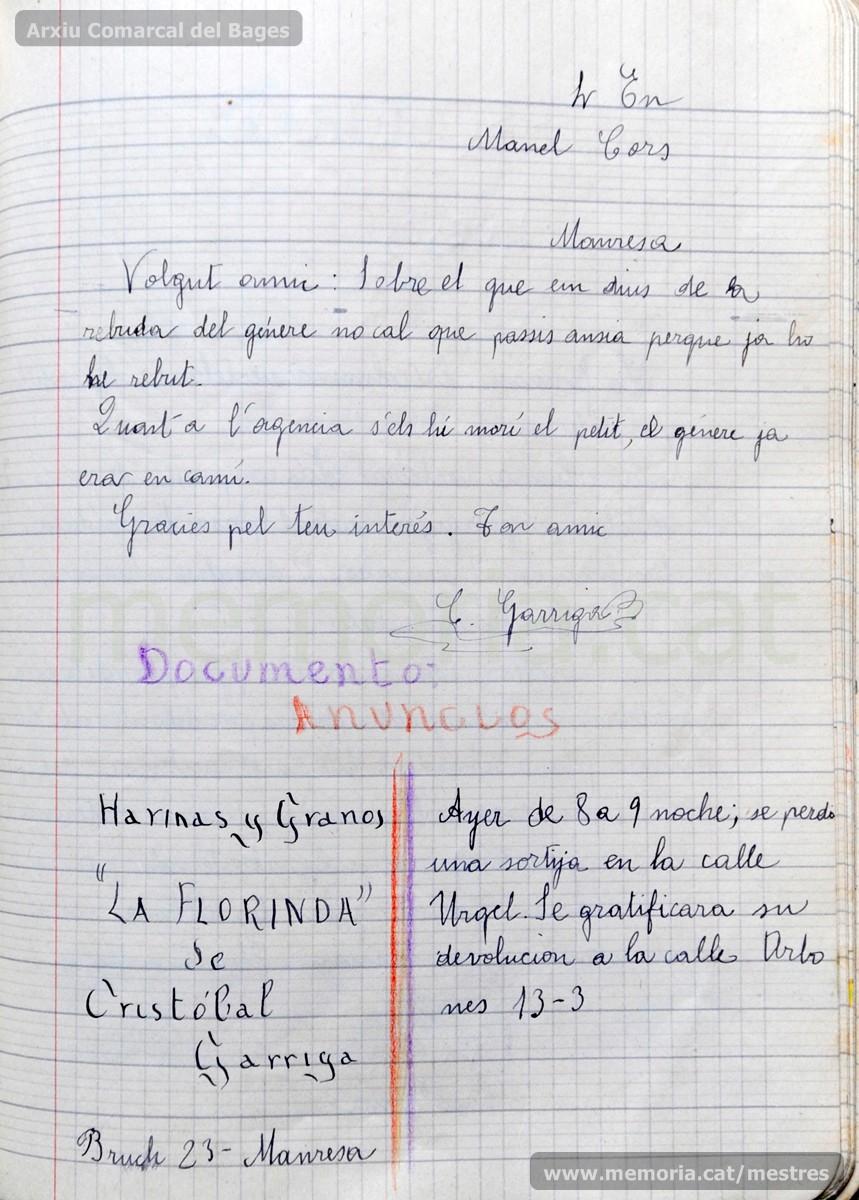 Arxiu Comarcal del Bages
Sr En
Manel Cors
Manresa
Volgut amic: Sobre el que em dius de la
rebuda del génere no cal que passis ansia perque ja ho
he rebut.
Quant a l'agencia s'els hi morí el petit, el génere ja
era en camí.
Gracies pel teu interés. Ton amic
C. Garriga
Documento:
Anuncios
Harinas y Granos
"LA FLORINDA"
de
Cristóbal
Garriga
Bruch 23- Manresa
Ayer de 8 a 9 noche; se perdó
una sortija en la calle
Urgel. Se gratificara su
devolucion a la calle Arbo
nes 13-3
memoria.cat
www.memoria.cat/mestres